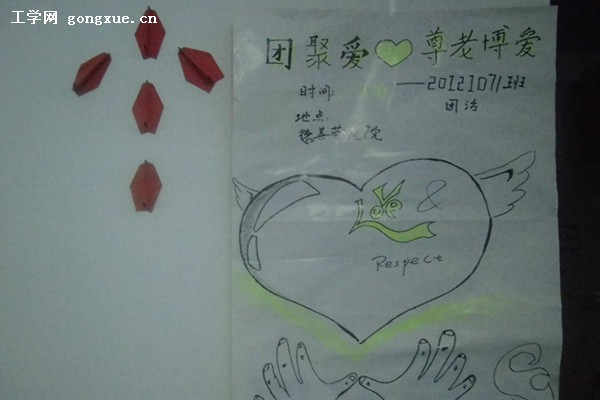 工学网 gongxue.cn
团聚爱 尊老博爱
——20121071班
团活
时间:
地点:
慈善养老院
Love &
Respect